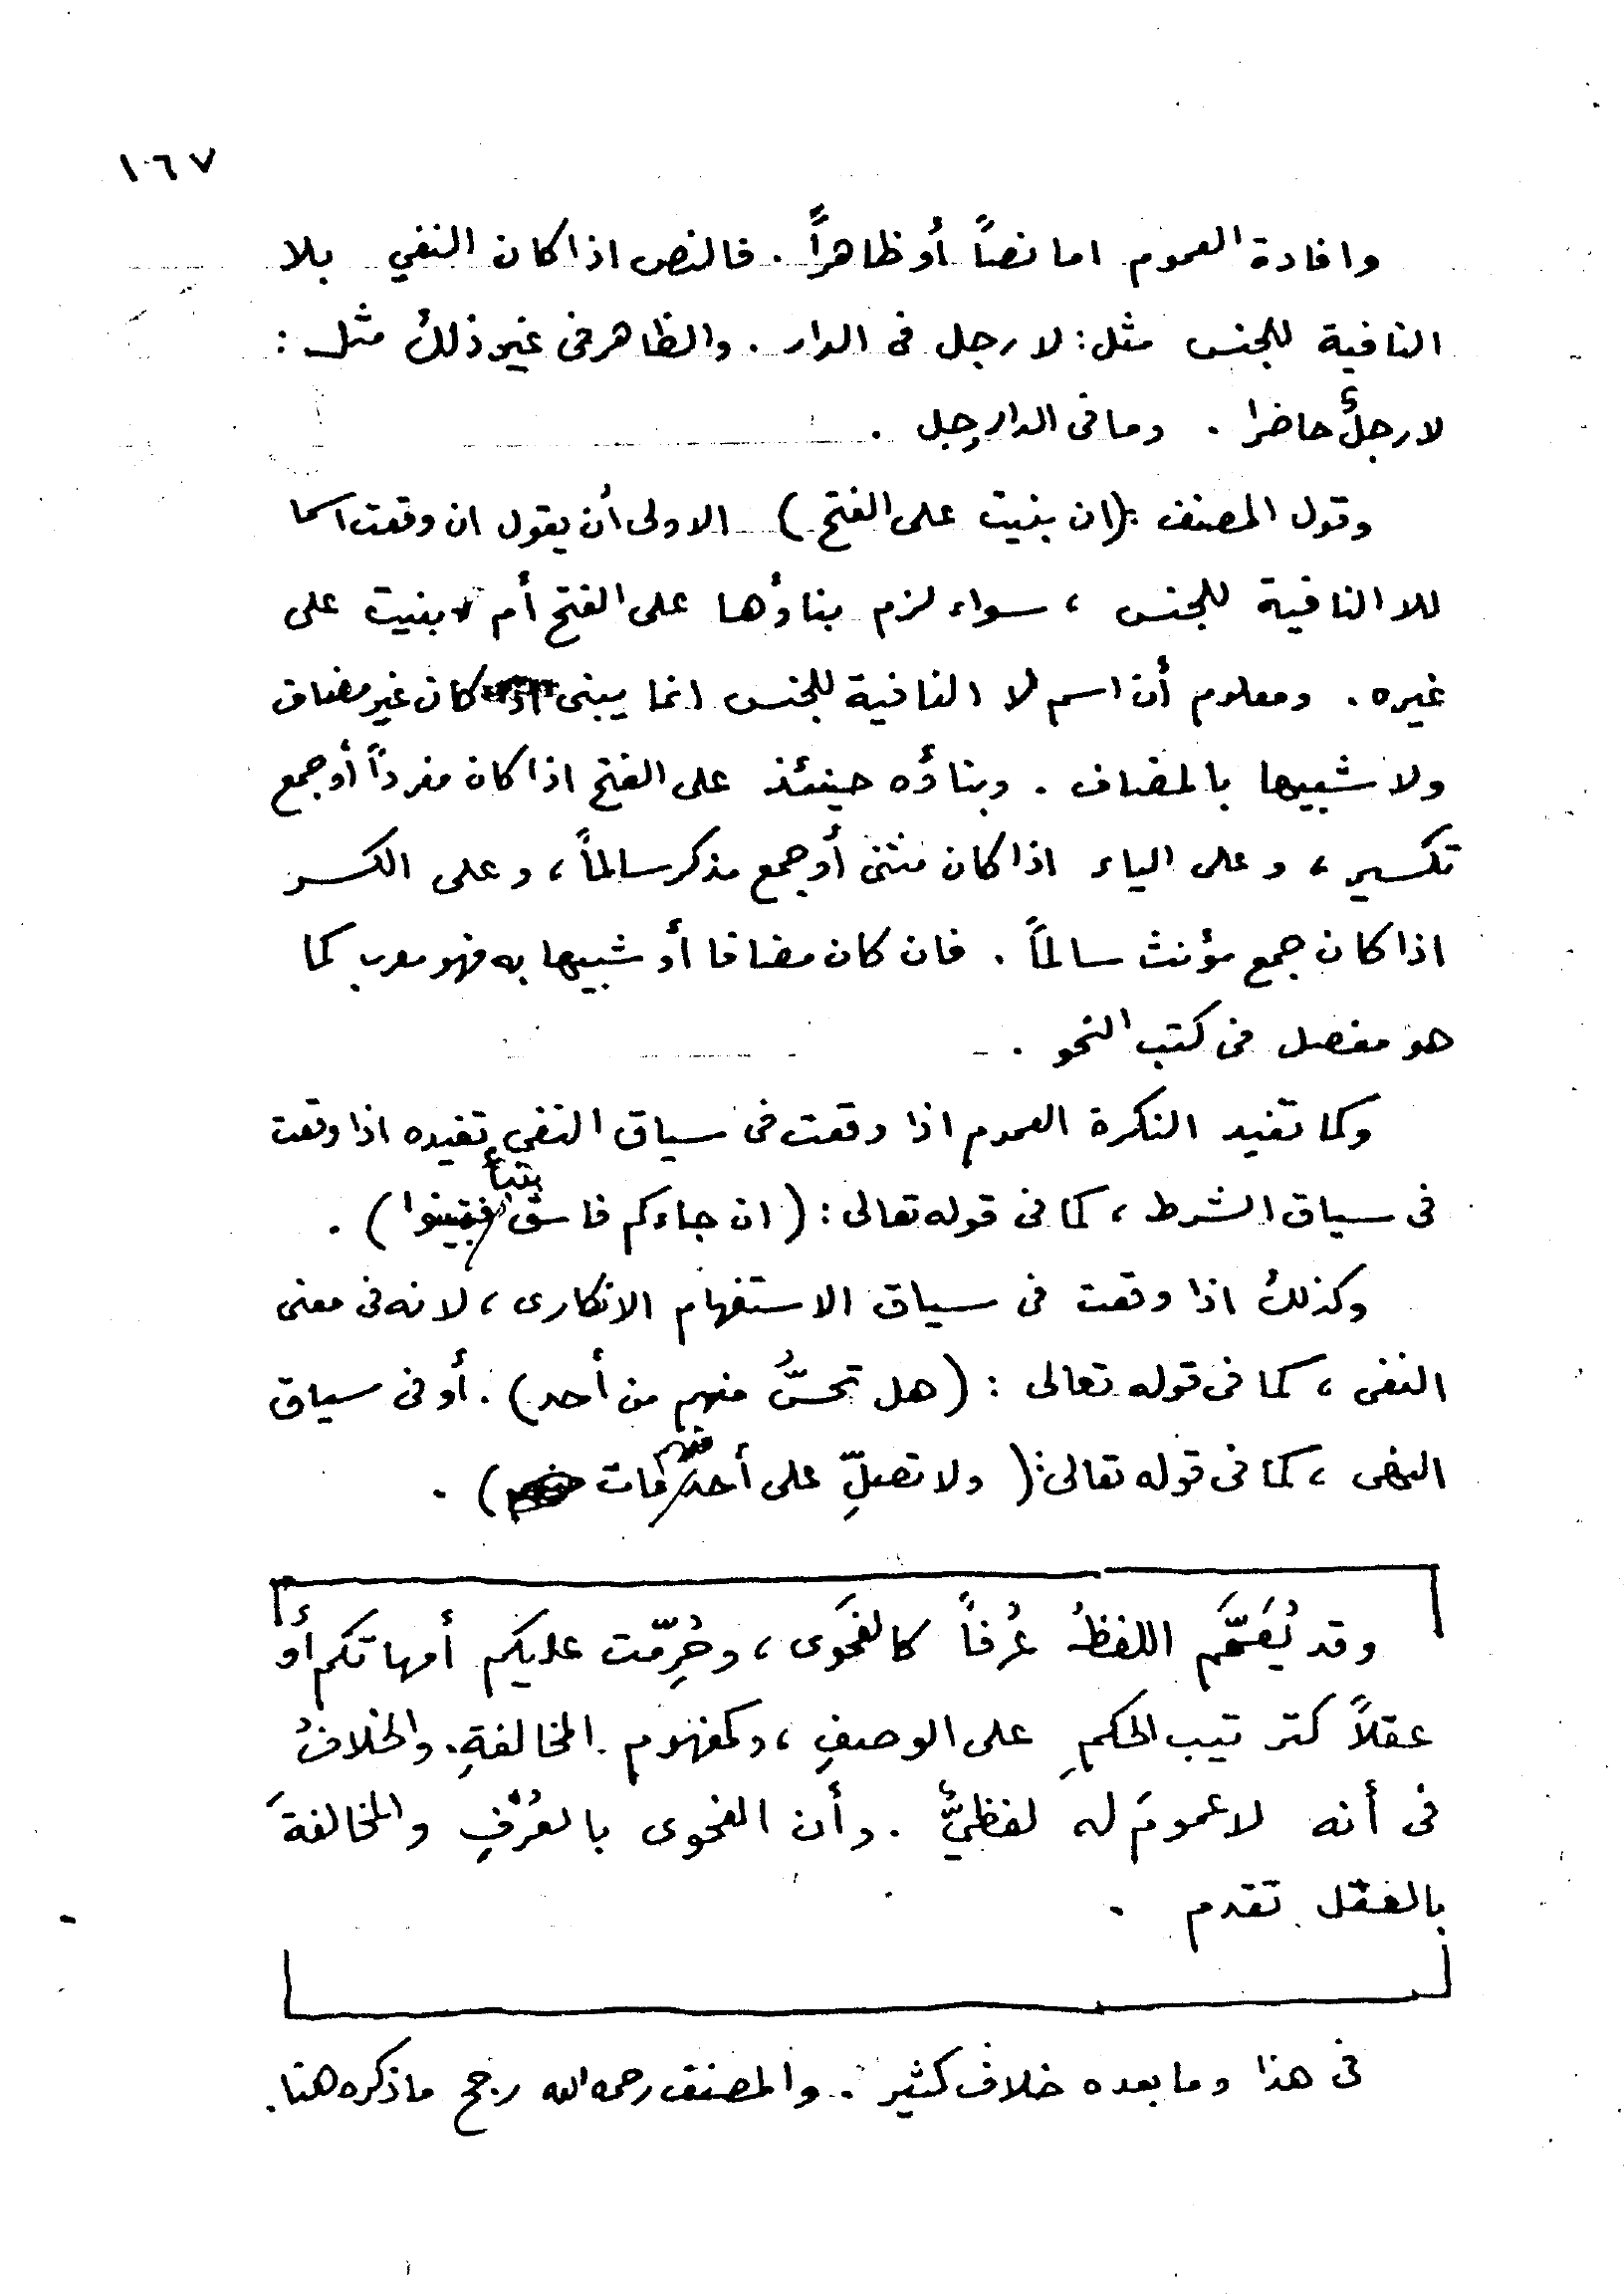 ١٦٧
وافادة العموم اما نصاً أو ظاهراً . فالنص اذا كان النفي بلا
النافية للجنس مثل : لا رجل فى الدار . والظاهر فى غير ذلك مثل :
لا رجلٌ حاضرا . وما فى الدار رجل .
وقول المصنف : (ان بنيت على الفتح) الاولى أن يقول ان وقعت اسما
للا النافية للجنس ، سواء لزم بناؤها على الفتح أم بنيت على
غيره . ومعلوم أن اسم لا النافية للجنس انما يبنى اذا كان غير مضاف
ولا شبيها بالمضاف . وبناؤه حينئذ على الفتح اذا كان مفرداً أو جمع
تكسير ، وعلى الياء اذا كان مثنى أو جمع مذكر سالماً ، وعلى الكسر
اذا كان جمع مؤنث سالماً . فان كان مضافا أو شبيها به فهو معرب كما
هو مفصل فى كتب النحو .
وكما تفيد النكرة العموم اذا وقعت فى سياق النفي تفيده اذا وقعت
فى سياق الشرط ، كما فى قوله تعالى : (ان جاءكم فاسق بنبأ فتبينوا) .
وكذلك اذا وقعت فى سياق الاستفهام الانكارى ، لانه فى معنى
النفى ، كما فى قوله تعالى : (هل تحسُّ منهم من أحد) . أو فى سياق
النهى ، كما فى قوله تعالى : (ولا تصلِّ على أحد منهم مات) .
وقد يُعَمَّم اللفظُ عُرفاً كالفَحوى ، وحُرِّمت عليكم أمهاتكم أو
عقلاً كترتيب الحكمِ على الوصفِ ، وكمفهوم المخالفةِ . والخلافُ
فى أنه لا عمومَ له لفظيٌّ . وأن الفحوى بالعُرْفِ والمخالفةَ
بالعقل تقدم .
فى هذا وما بعده خلاف كثير . والمصنف رحمه الله رجح ما ذكره هنا .